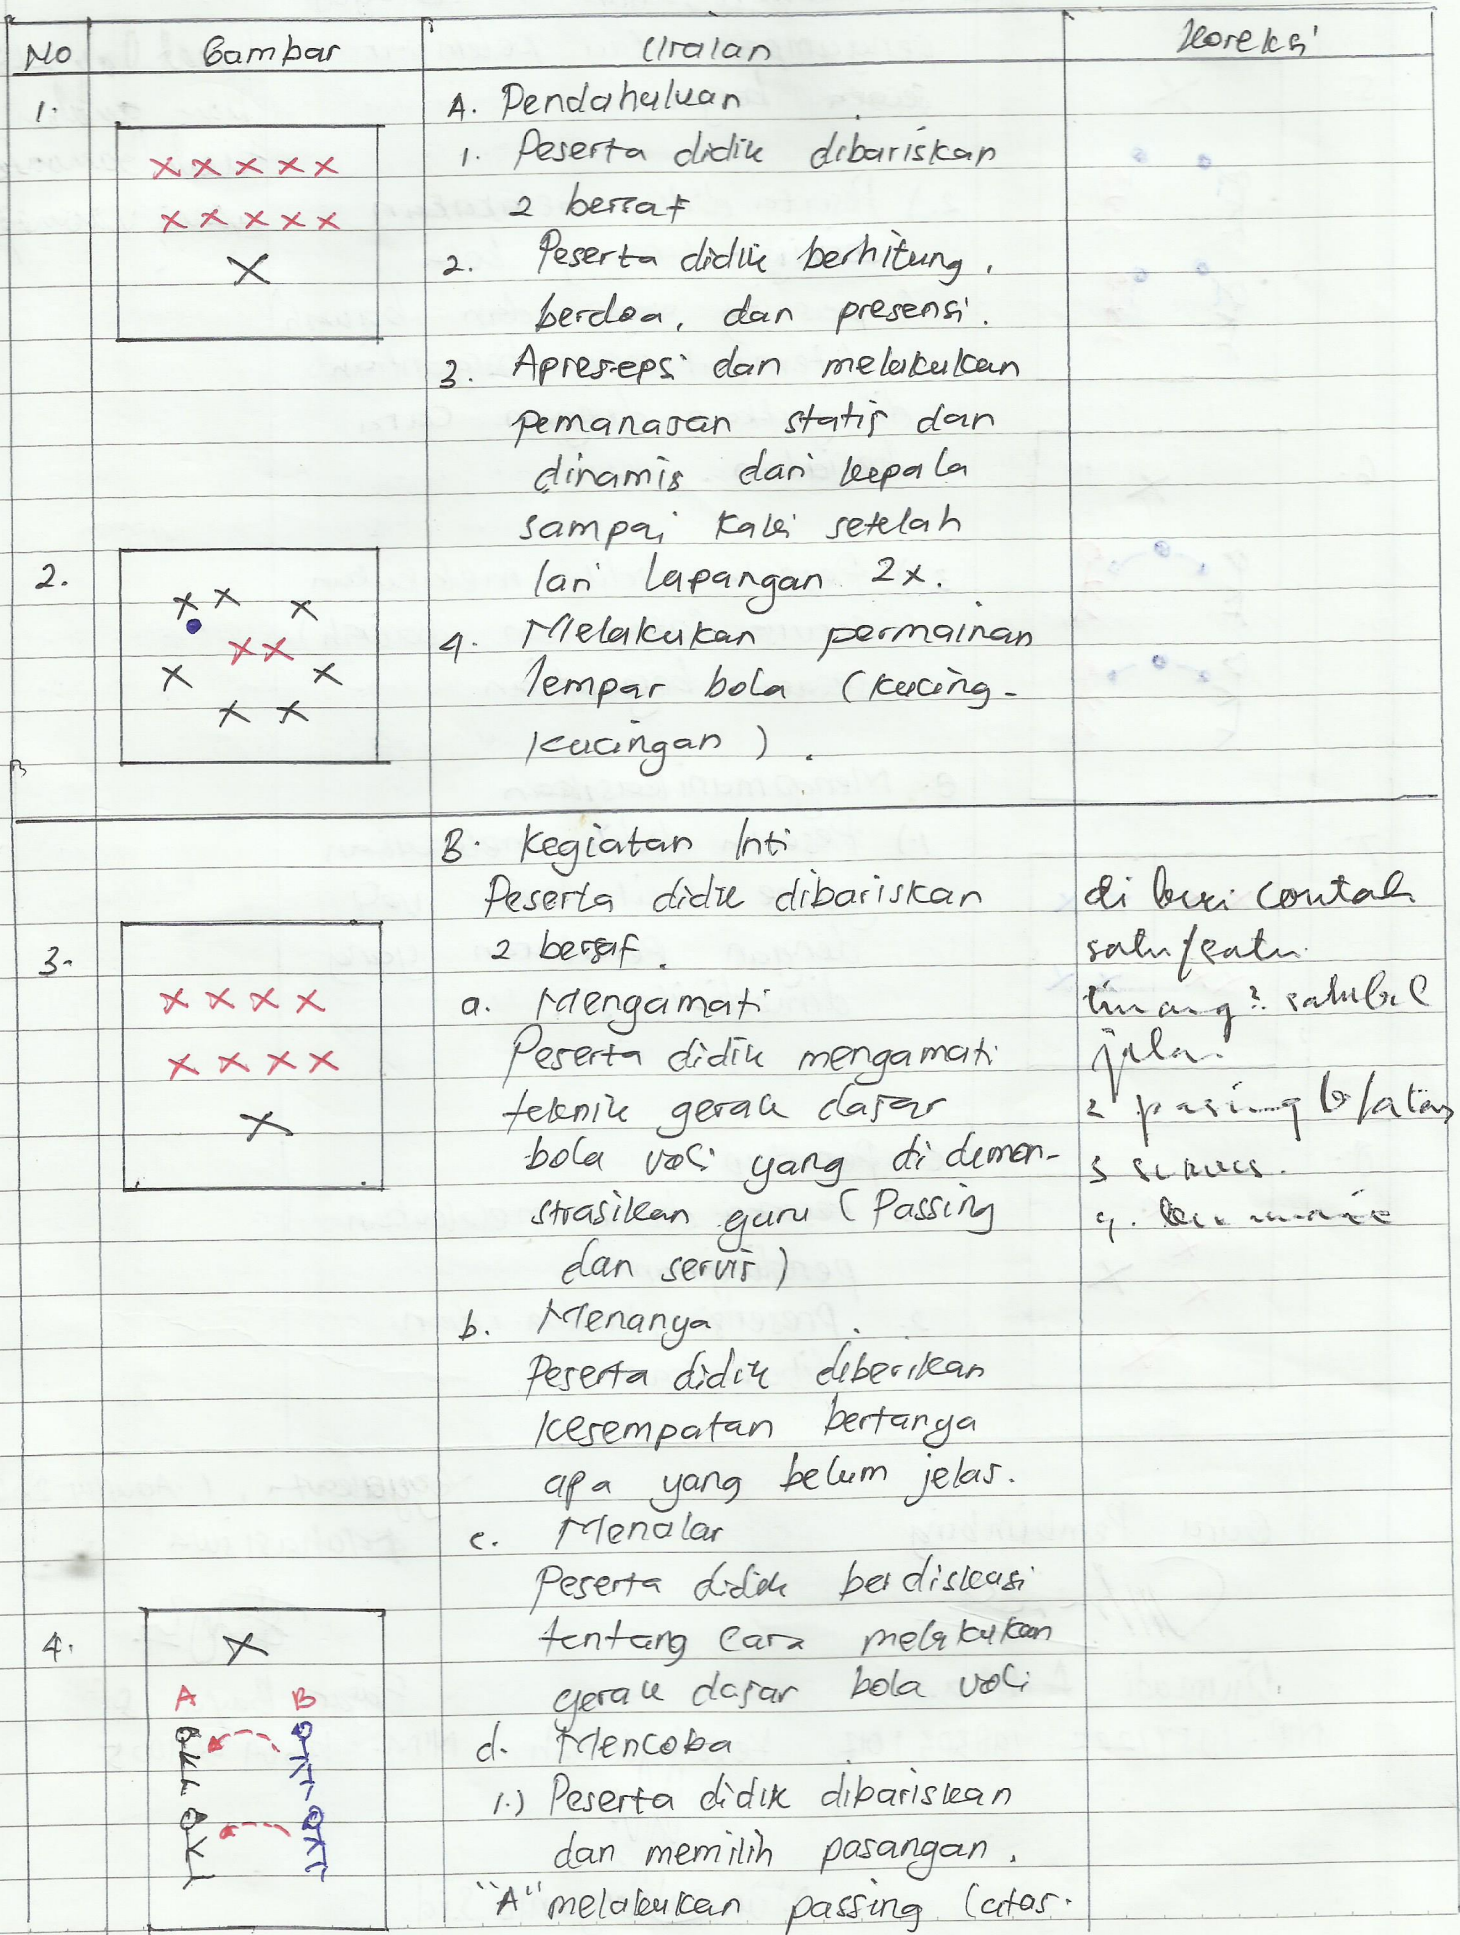 No Gambar Uraian Koreksi
1. A. Pendahuluan
1. Peserta didik dibariskan
2 bersaf
2. Peserta didik berhitung,
berdoa, dan presensi.
3. Apresepsi dan melakukan
pemanasan statis dan
dinamis dari kepala
sampai kaki setelah
2. lari lapangan 2x.
4. Melakukan permainan
lempar bola (kucing-
kucingan).
B. Kegiatan Inti
Peserta didik dibariskan
3. 2 bersaf.
a. Mengamati
Peserta didik mengamati
teknik gerak dasar
bola voli yang di demon-
strasikan guru (Passing
dan servis)
di beri contoh
satu/satu
2 pasing b/atas
b. Menanya
Peserta didik diberikan
kesempatan bertanya
apa yang belum jelas.
c. Menalar
Peserta didik berdiskusi
4. tentang cara melakukan
gerak dasar bola voli
A B
d. Mencoba
1.) Peserta didik dibariskan
dan memilih pasangan.
"A" melakukan passing (atas.